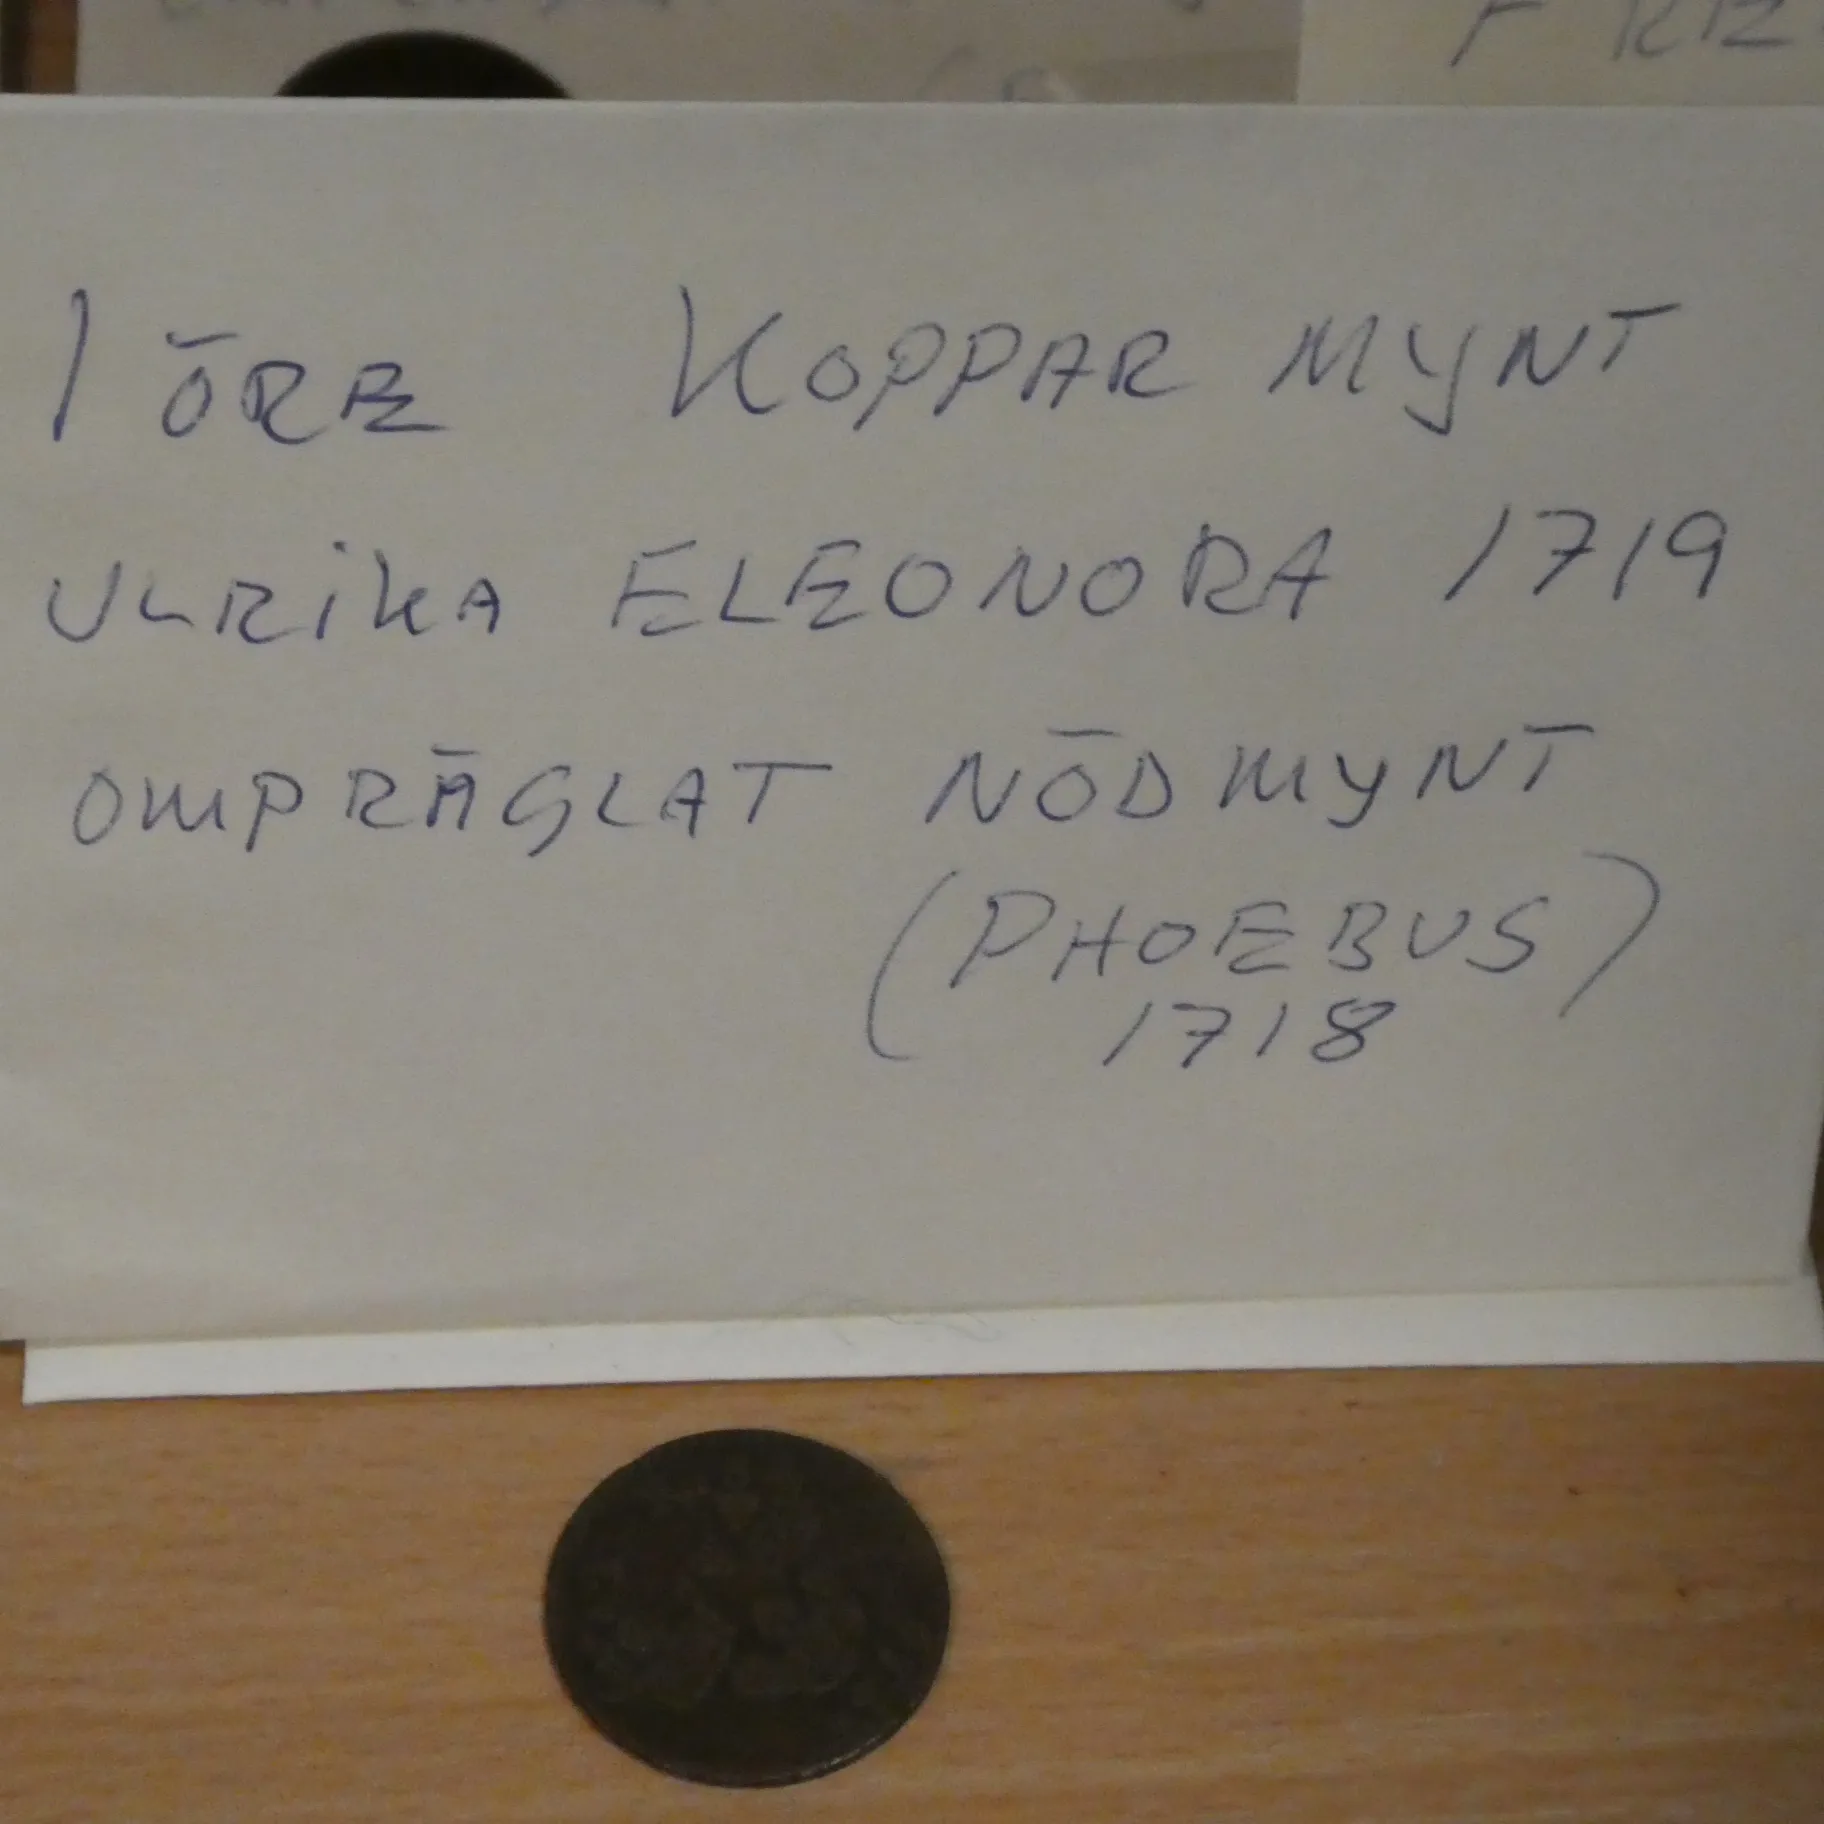 1 ÖRE KOPPARMYNT
ULRiKA ELEONORA 1719
OMPRÄGLAT NÖDMYNT
(PHOEBUS)
1718